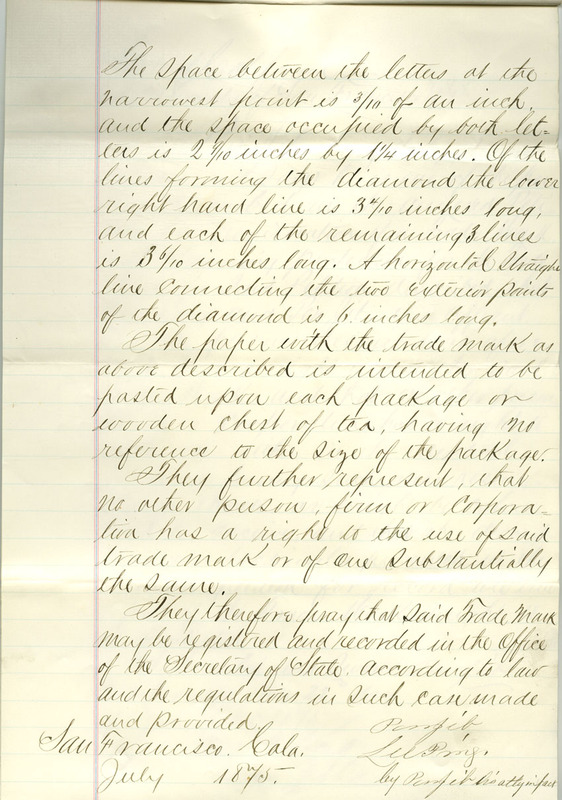 The space between the letters at the
narrowest point is 3/10 of an inch,
and the space occupied by both let=
ters is 2 9/10 inches by 1 1/4 inches. Of the
lines forming the diamond the lower
right hand line is 3 4/10 inches long,
and each of the remaining 3 lines
is 3 6/10 inches long. A horizontal straight
line connecting the two exterior points
of the diamond is 6. inches long.
The paper with the trade mark as
above described is intended to be
pasted upon each package or
wooden chest of tea, having no
reference to the size of the package.
They further represent, that
no other person, firm or Corpora=
tion has a right to the use of said
trade mark or of one substantially
the same.
They therefore pray that said Trade Mark
may be registered and recorded in the Office
of the Secretary of State. according to law
and the regulations in such case made
and provided.
San Francisco. Cala.
July 1875.
by his atty in fact